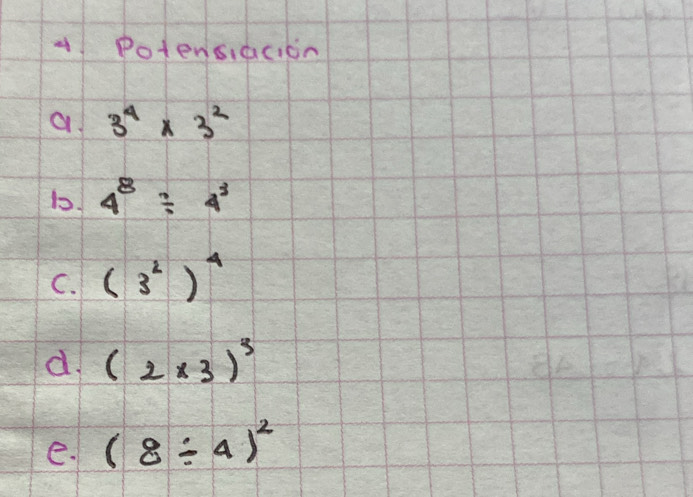 4. Potensiación
a. 3⁴ x 3²
b. 4⁸ ÷ 4³
c. (3²)⁴
d. (2 x 3)³
e. (8 ÷ 4)²